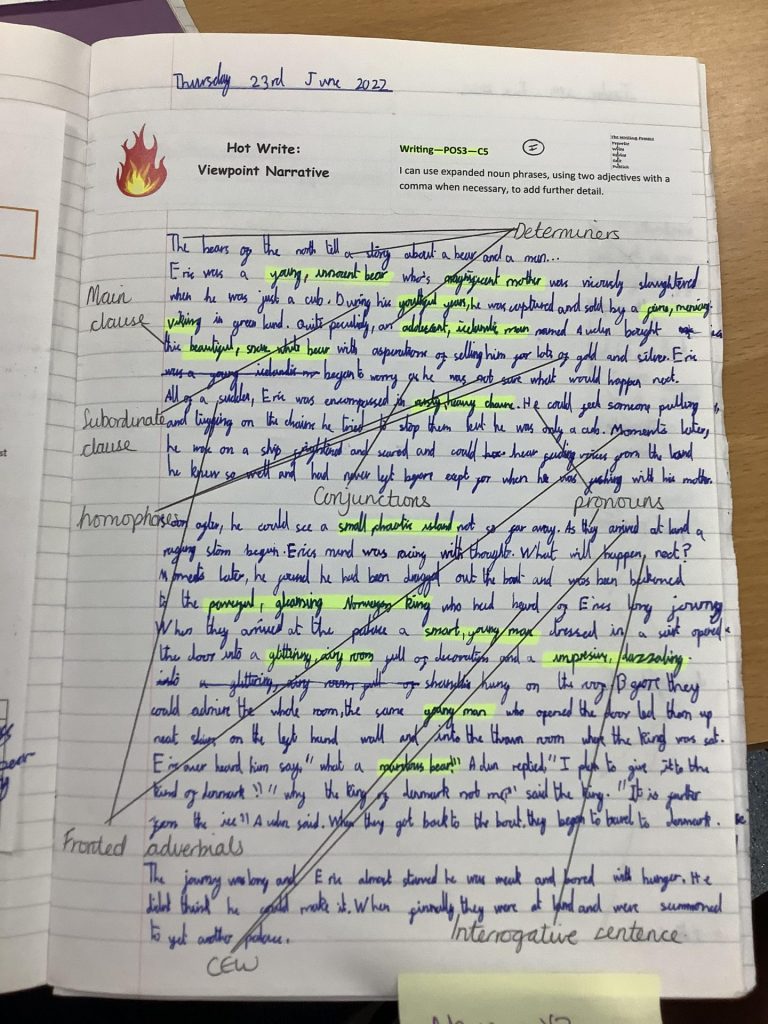 Thursday 23rd June 2022
Hot Write:
Viewpoint Narrative
Writing—POS3—C5
I can use expanded noun phrases, using two adjectives with a
comma when necessary, to add further detail.
Determiners
The bears of the north tell a story about a bear and a man...
Eric was a young, innocent bear who's magnificent mother was viciously slaughtered
Main
clause
when he was just a cub. During his youthful years, he was captured and sold by a
viking in green land. Quite peculiarly, an icelandic man named Audun bought
this beautiful, snow white bear with asperations of selling him for lots of gold and silver. Eric
was a young icelandic began to worry as he was not sure what would happen next.
All of a sudden, Eric was encompased in heavy chains. He could feel someone pulling
Subordinate
clause
and tugging on the chains he tried to stop them but he was only a cub. Moments later,
he was on a ship frightened and scared and could hear voices from the land
he knew so well and had never left before exept for when he was fishing with his mother.
Conjunctions
pronouns
homophones
Soon after, he could see a small island not so far away. As they arrived at land a
raging storm begun. Erics mind was racing with thought. What will happen, next?
Moments later, he found he had been dragged out the boat and was been beckoned
to the powerful, gleaming Norwegen king who had heard of Erics long journey
When they arrived at the palace a smart, young man dressed in a suit opened
the door into a glittering, airy room full of decoration and a impresive,
into a glittering, airy room full of hung on the roof. Before they
could admire the whole room, the same young man who opened the door led them up
neat on the left hand wall and into the thrown room where the King was sat.
Eric over heard him say, "what a bear!" Adun replied, "I plan to give it to the
kind of denmark !!" "why the king of denmark not me?" said the king. "It is
from the ice" Audun said. When they got back to the boat, they began to travel to denmark.
Fronted adverbials
The journey was long and Eric almost starved he was weak and bored with hunger. He
didnt think he could make it. When finnally they were at land and were summoned
to yet another palace.
Interrogative sentence
CEW